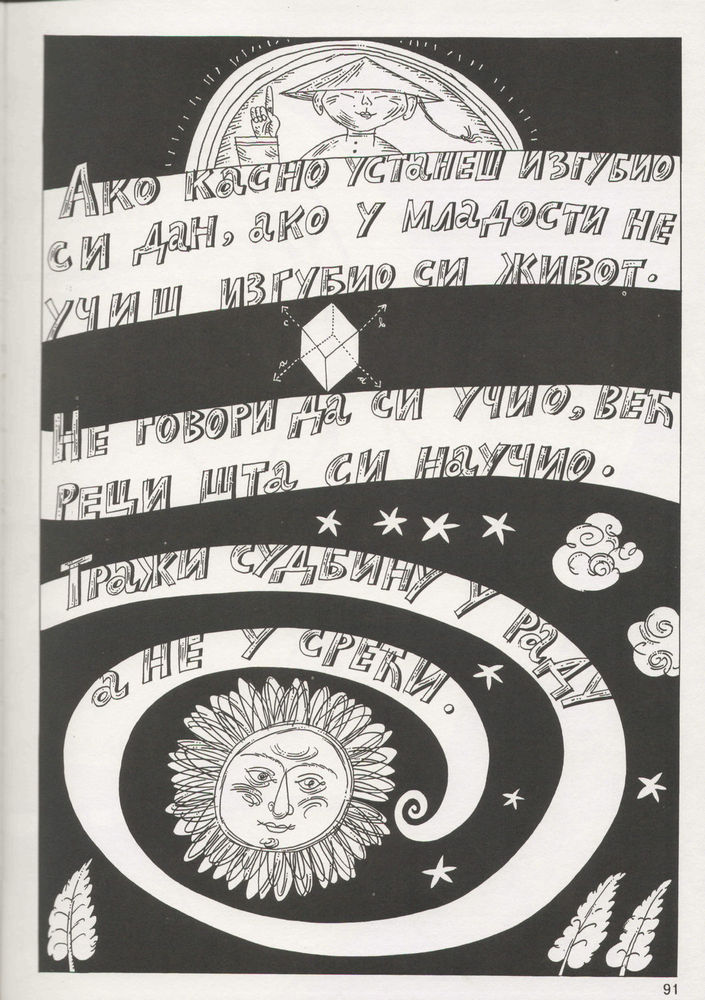 Ако касно устанеш изгубио
си дан, ако у младости не
учиш изгубио си живот.
Не говори да си учио, већ
реци шта си научио.
Тражи судбину у раду
а не у срећи.
91